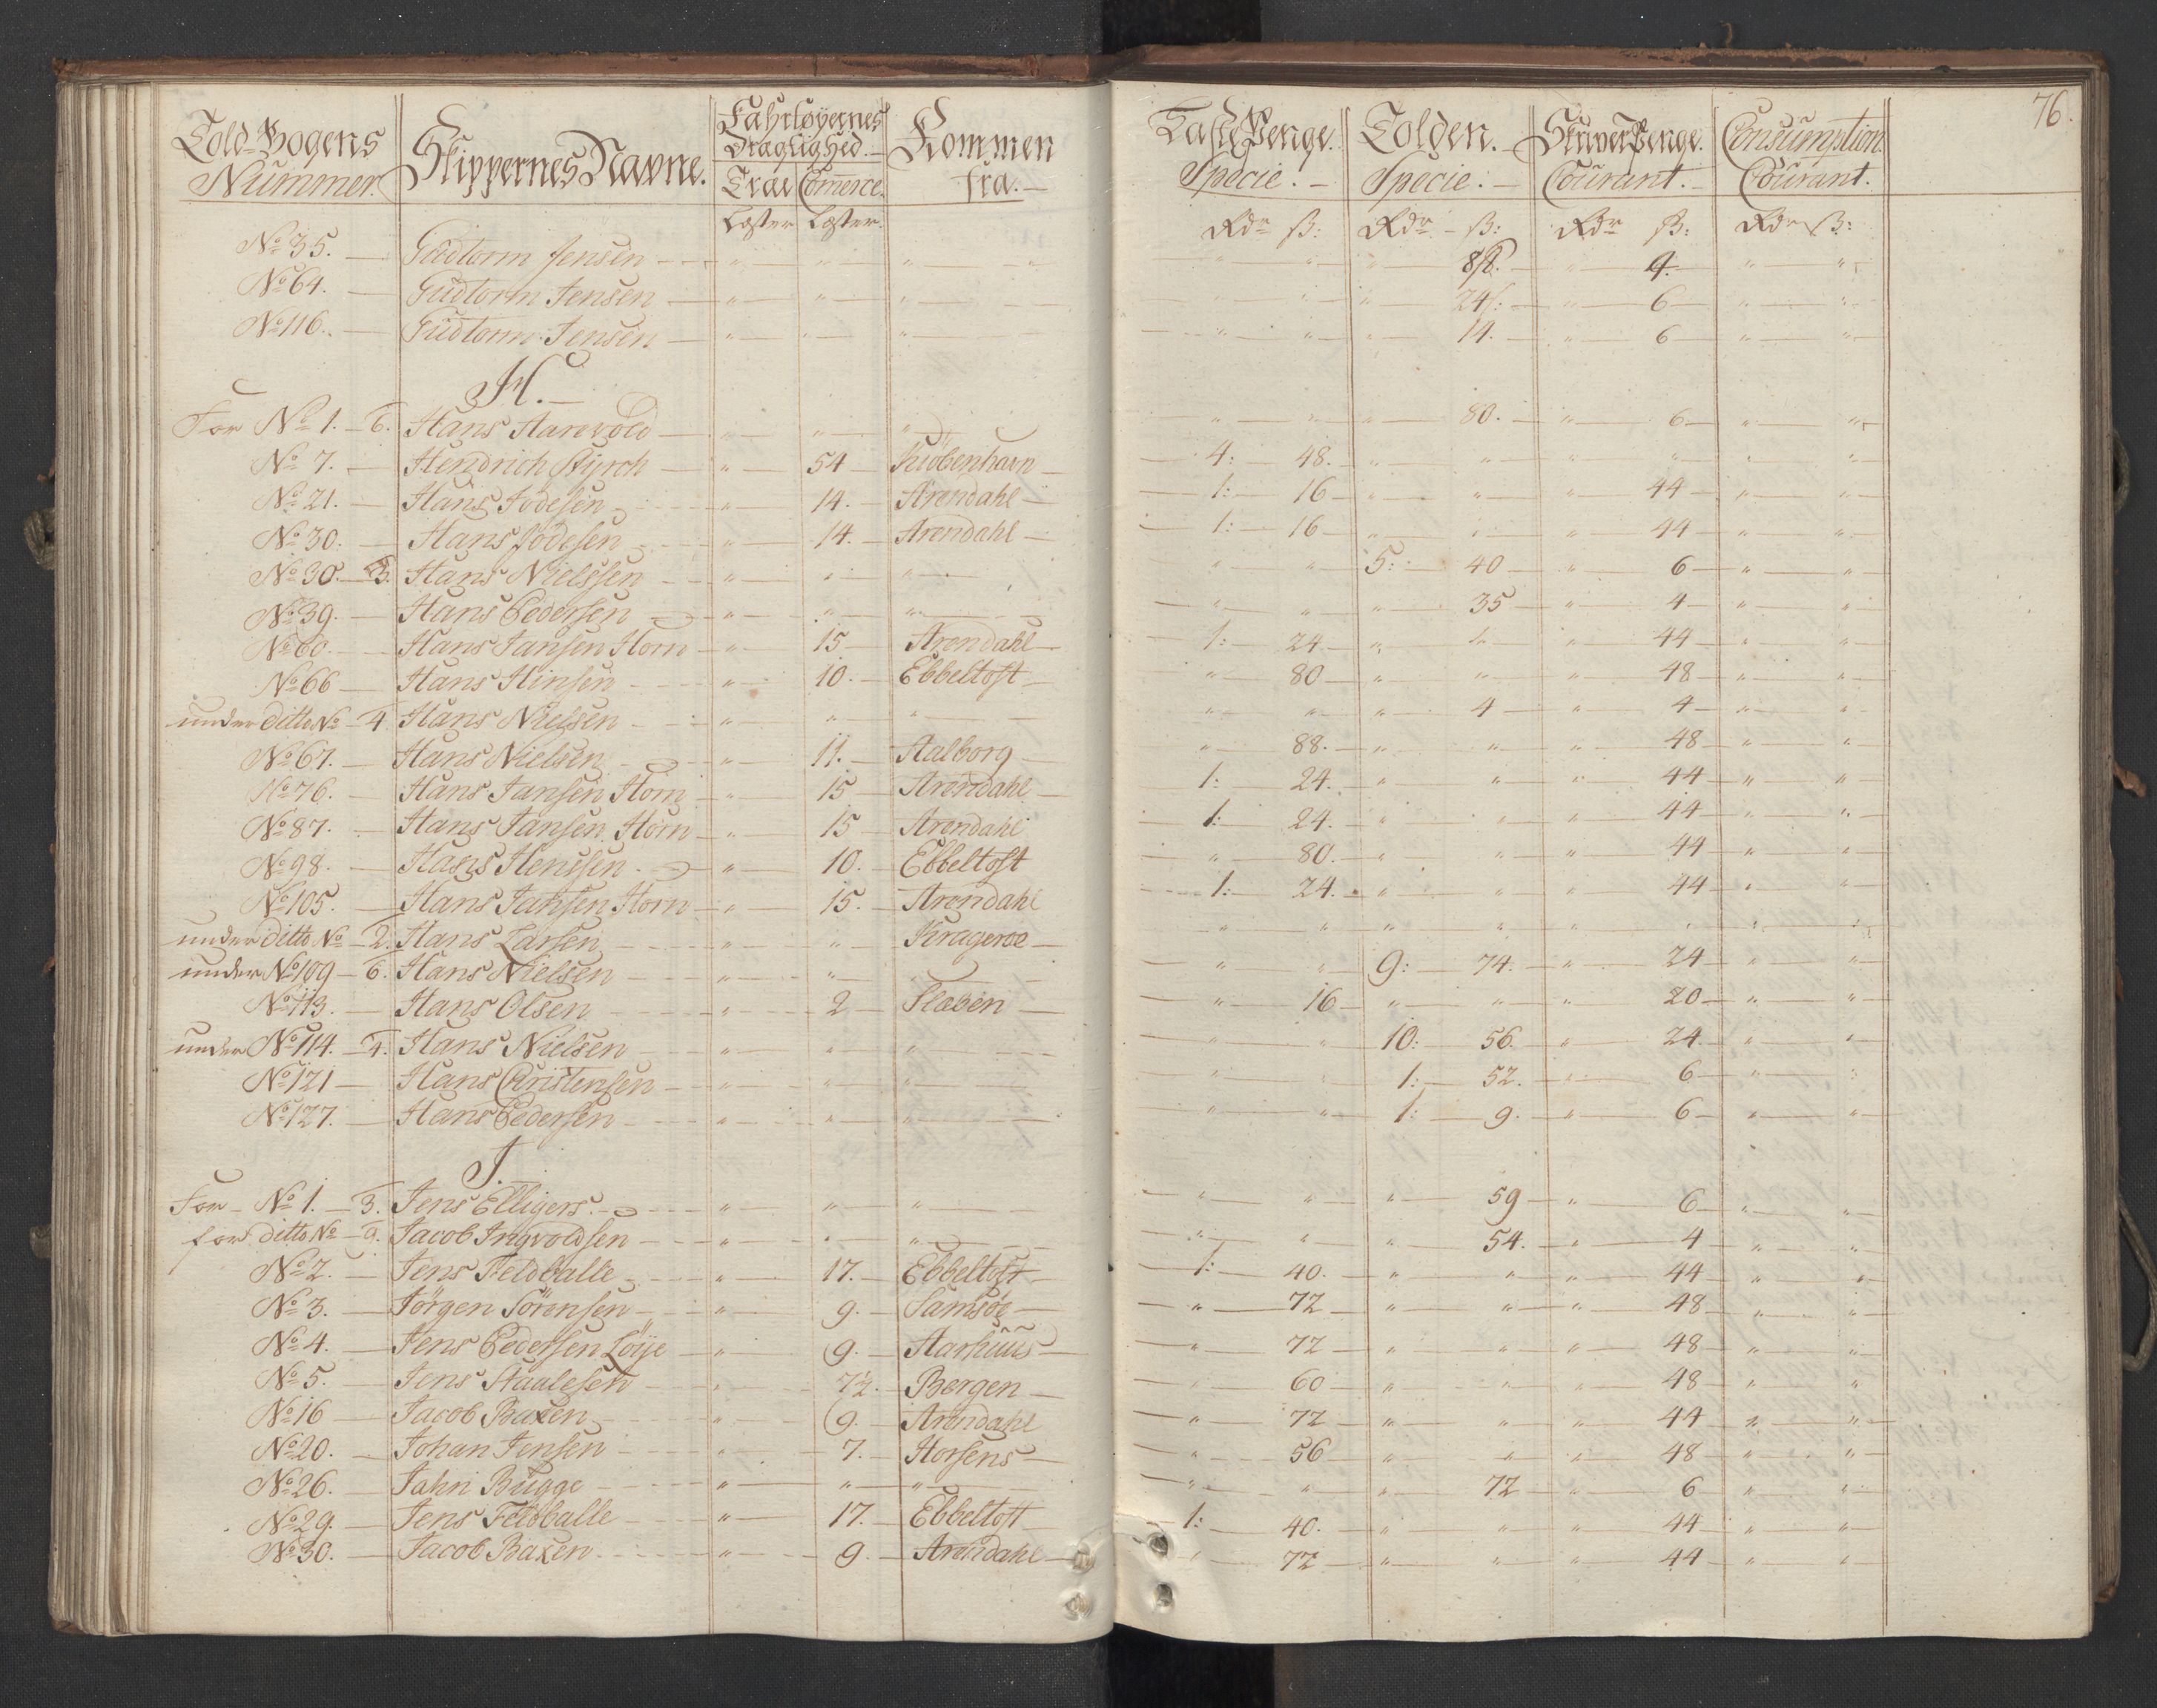 76.
Told-Bogens Nummer. Skippernes Navne. Fahrtøyernes Dræglighed. Kommen fra. Læste Penge. Tolden. Skuver Penge. Consumption.
Træ Læster Commerce. Læster. Specie. Specie. Courant. Courant.
Rdr ß: Rdr ß: Rdr ß: Rdr ß:
No 35. Gudtorm Jensen " " " " " " 88. " 4. " "
No 64. Gudtorm Jensen " " " " " " 24 " 6 " "
No 116. Gudtorm Jensen " " " " " " 14. " 6 " "
H.
For No 1. 6. Hans Aarevold " " " " " " 80. " 6 " "
No 7. Hendrich Styrch " 54 Kiöbenhavn 4: 48. " " " " " "
No 21. Hans Jodesen " 14. Arendahl 1: 16 " " " 44 " "
No 30. Hans Jodesen " 14. Arendahl 1: 16 " " " 44 " "
No 30. 3. Hans Nielssen " " " " " 5: 40 " 6 " "
No 39. Hans Pedersen " " " " " " 35 " 4 " "
No 60. Hans Jansen Horn " 15 Arendahl 1: 24 " " " 44 " "
No 66 Hans Hinsen " 10. Ebbeltoft " 80 " " " 48 " "
under ditto No 4 Hans Nielsen " " " " " " 4 " 4 " "
No 67. Hans Nielsen " 11. Aalborg " 88. " " " 48 " "
No 76. Hans Jansen Horn " 15 Arendahl 1: 24. " " " 44 " "
No 87. Hans Jansen Horn " 15 Arendahl 1: 24. " " " 44 " "
No 98. Hans Henssen " 10. Ebbeltoft " 80. " " " 44 " "
No 105. Hans Jansen Horn " 15. Arendahl 1: 24. " " " 44 " "
under ditto No 2. Hans Larsen " " Krageroe " " " " " " " "
under No 109 6. Hans Nielsen " " " " " 9: 74. " 24 " "
No 113. Hans Olsen " 2 Flæben " 16 " " " 20 " "
under No 114. 4. Hans Nielsen " " " " " 10: 56. " 24. " "
No 121 Hans Christensen " " " " " 1: 52. " 6 " "
No 127. Hans Pedersen " " " " " 1: 9. " 6 " "
J.
For No 1. 3. Jens Elligers. " " " " " " 59 " 6 " "
for ditto No 9. Jacob Ingvoldsen " " " " " " 54. " 4 " "
No 2. Jens Feldballe " 17. Ebbeltoft 1: 40. " " " 44 " "
No 3. Jörgen Sörensen " 9. Samsöe " 72 " " " 48 " "
No 4. Jens Pedersen Löye " 9. Aarhuus " 72 " " " 48 " "
No 5. Jens Staalesen " 7½. Bergen " 60 " " " 48 " "
No 16 Jacob Baxen " 9. Arendahl " 72 " " " 44 " "
No 20. Johan Jensen " 7. Horsens " 56 " " " 48 " "
No 26. Jahn Bugge " " " " " " 72 " 6 " "
No 29. Jens Feldballe " 17. Ebbeltoft 1: 40. " " " 44 " "
No 30. Jacob Baxen " 9. Arendahl " 72 " " " 44 " "